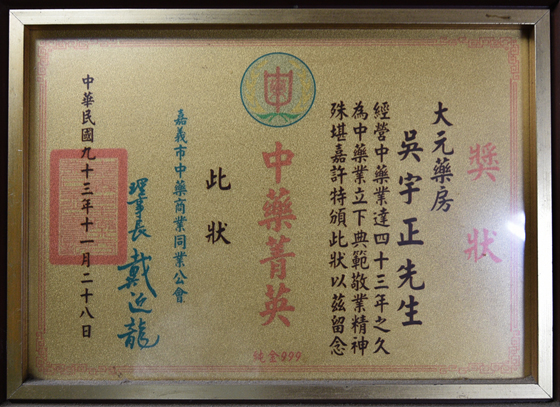 獎狀
大元藥房
吳宇正先生
經營中藥業達四十三年之久
為中藥業立下典範敬業精神
殊堪嘉許特頒此狀以茲留念
中藥菁英
純金999
此狀
嘉義市中藥商業同業公會
理事長 戴近龍
中華民國九十三年十一月二十八日